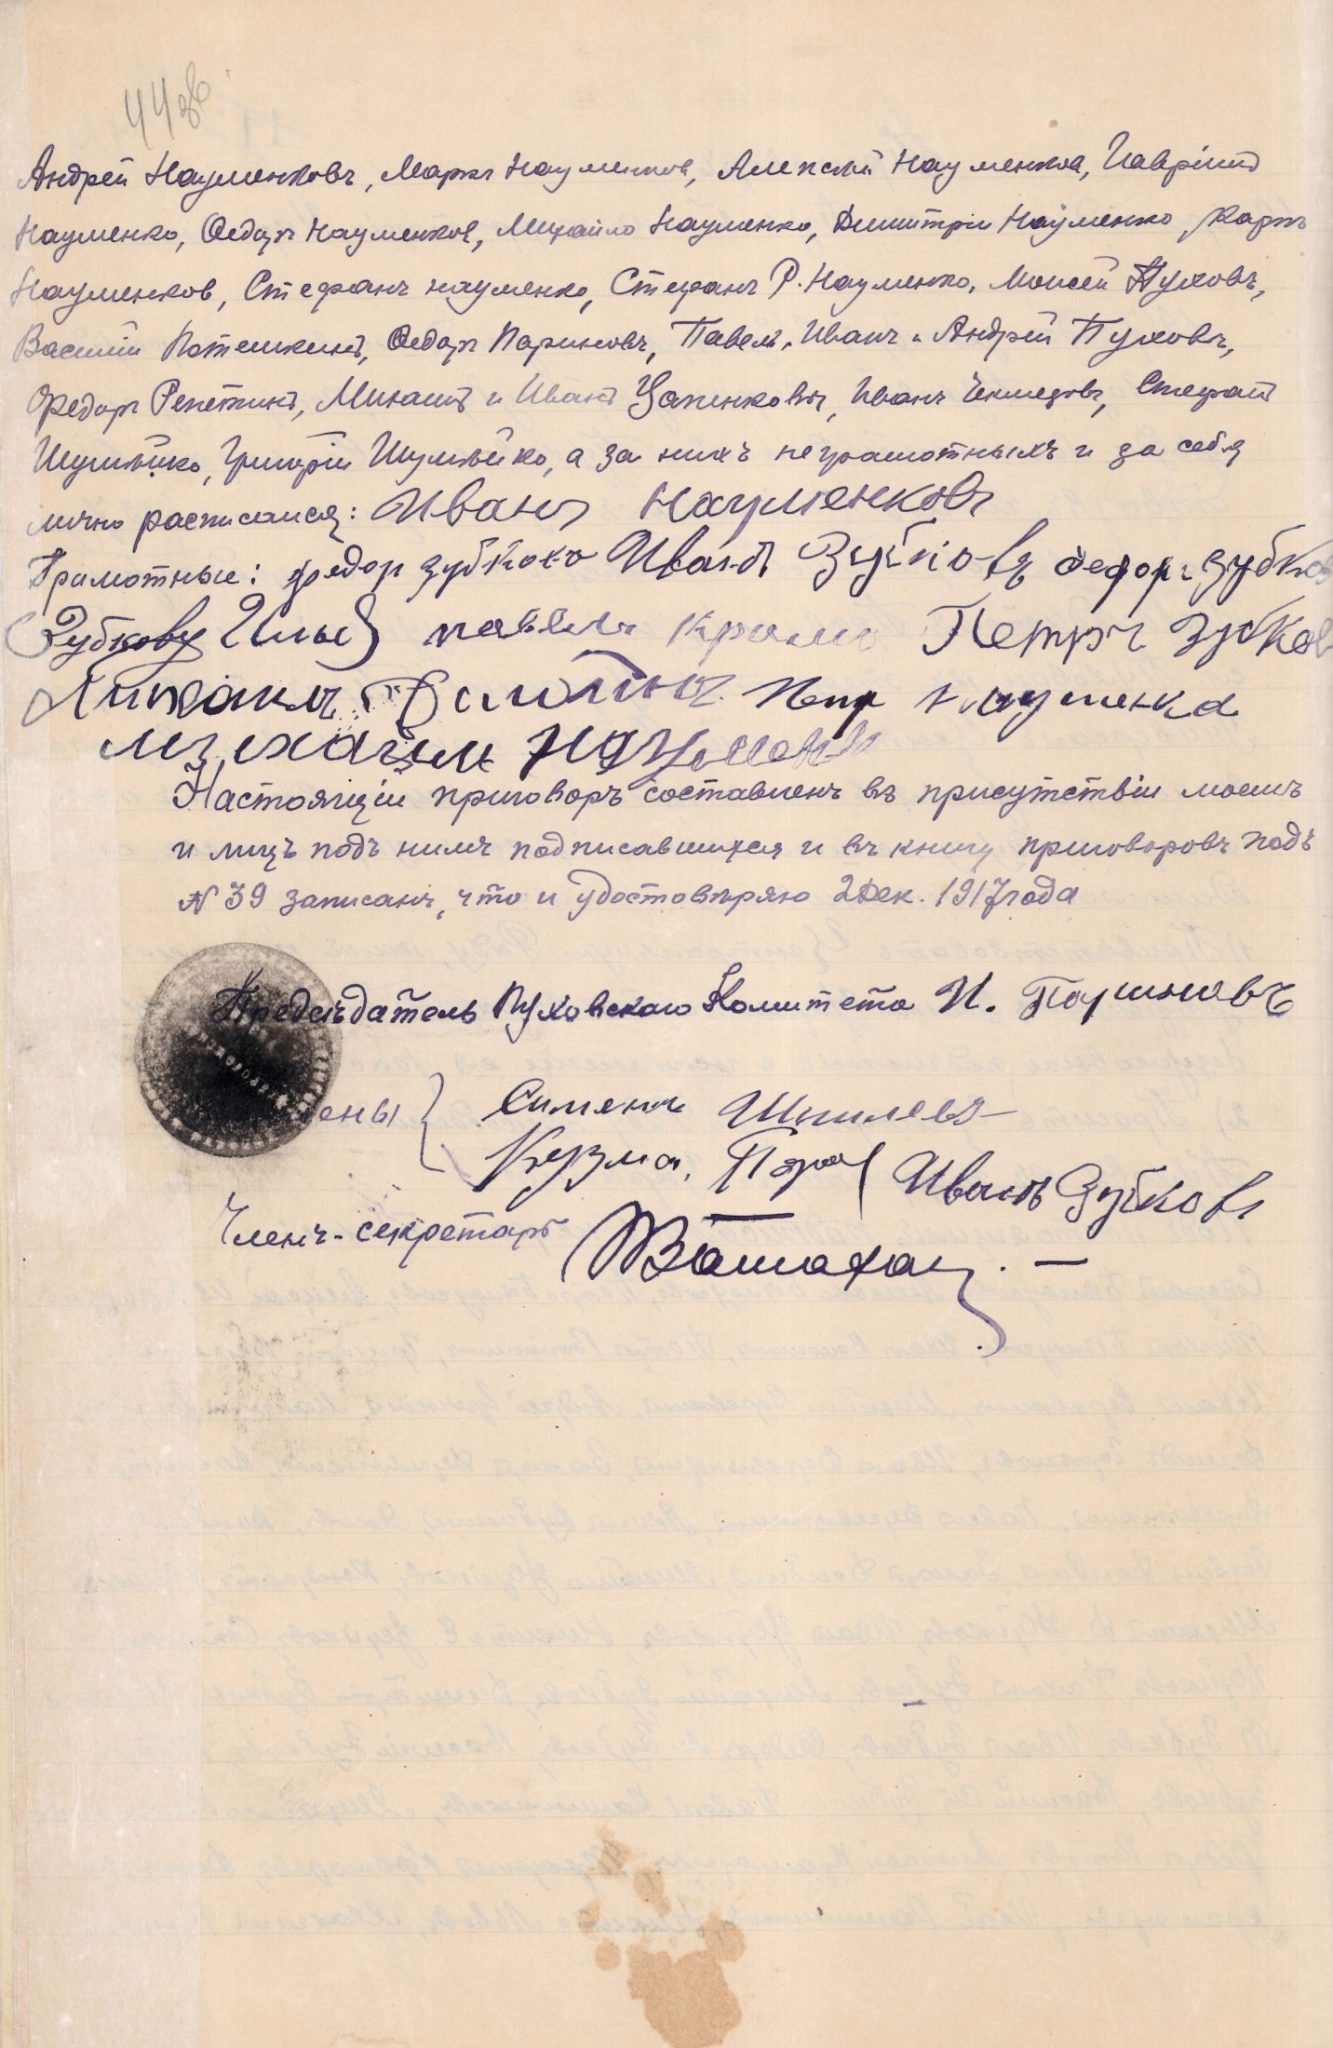 44об
Андрей Науменковъ, Маркъ Науменков, Алексѣй Науменков, Гавріилъ
Науменко, Ѳедоръ Науменков, Михайло Науменко, Дмитрій Науменко, Карпъ
Науменков, Стефанъ Науменко, Стефанъ Р. Науменко, Моисей Пуховъ,
Василій Потешкинъ, Ѳедоръ Париновъ, Павелъ, Иванъ и Андрей Пуховъ,
Федоръ Репетинъ, Михаилъ и Иванъ Цапенковы, Иванъ Стефанъ
Шулѣйко, Григорій Шулѣйко, а за нихъ неграмотныхъ и за себя
лично росписался: Иванъ Науменковъ
Грамотные: Федор Зубковъ Иванъ Зубковъ Федоръ Зубков
Зубковъ Илья Павелъ Петръ Зубков
Петр Науменка
Михаилъ
Настоящій приговоръ составленъ въ присутствіи моемъ
и лицъ подъ нимъ подписавшихся и въ книгу приговоровъ подъ
№ 39 записанъ, что и удостовѣряю 2 Дек. 1917 года
Предсѣдатель Пуховскаго Комитета И. Париновъ
ены { Сименъ
Кузма Иванъ Зубковъ
Членъ-секретарь